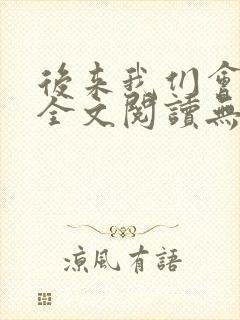 後来我们會
全文閱讀無
涼風有語